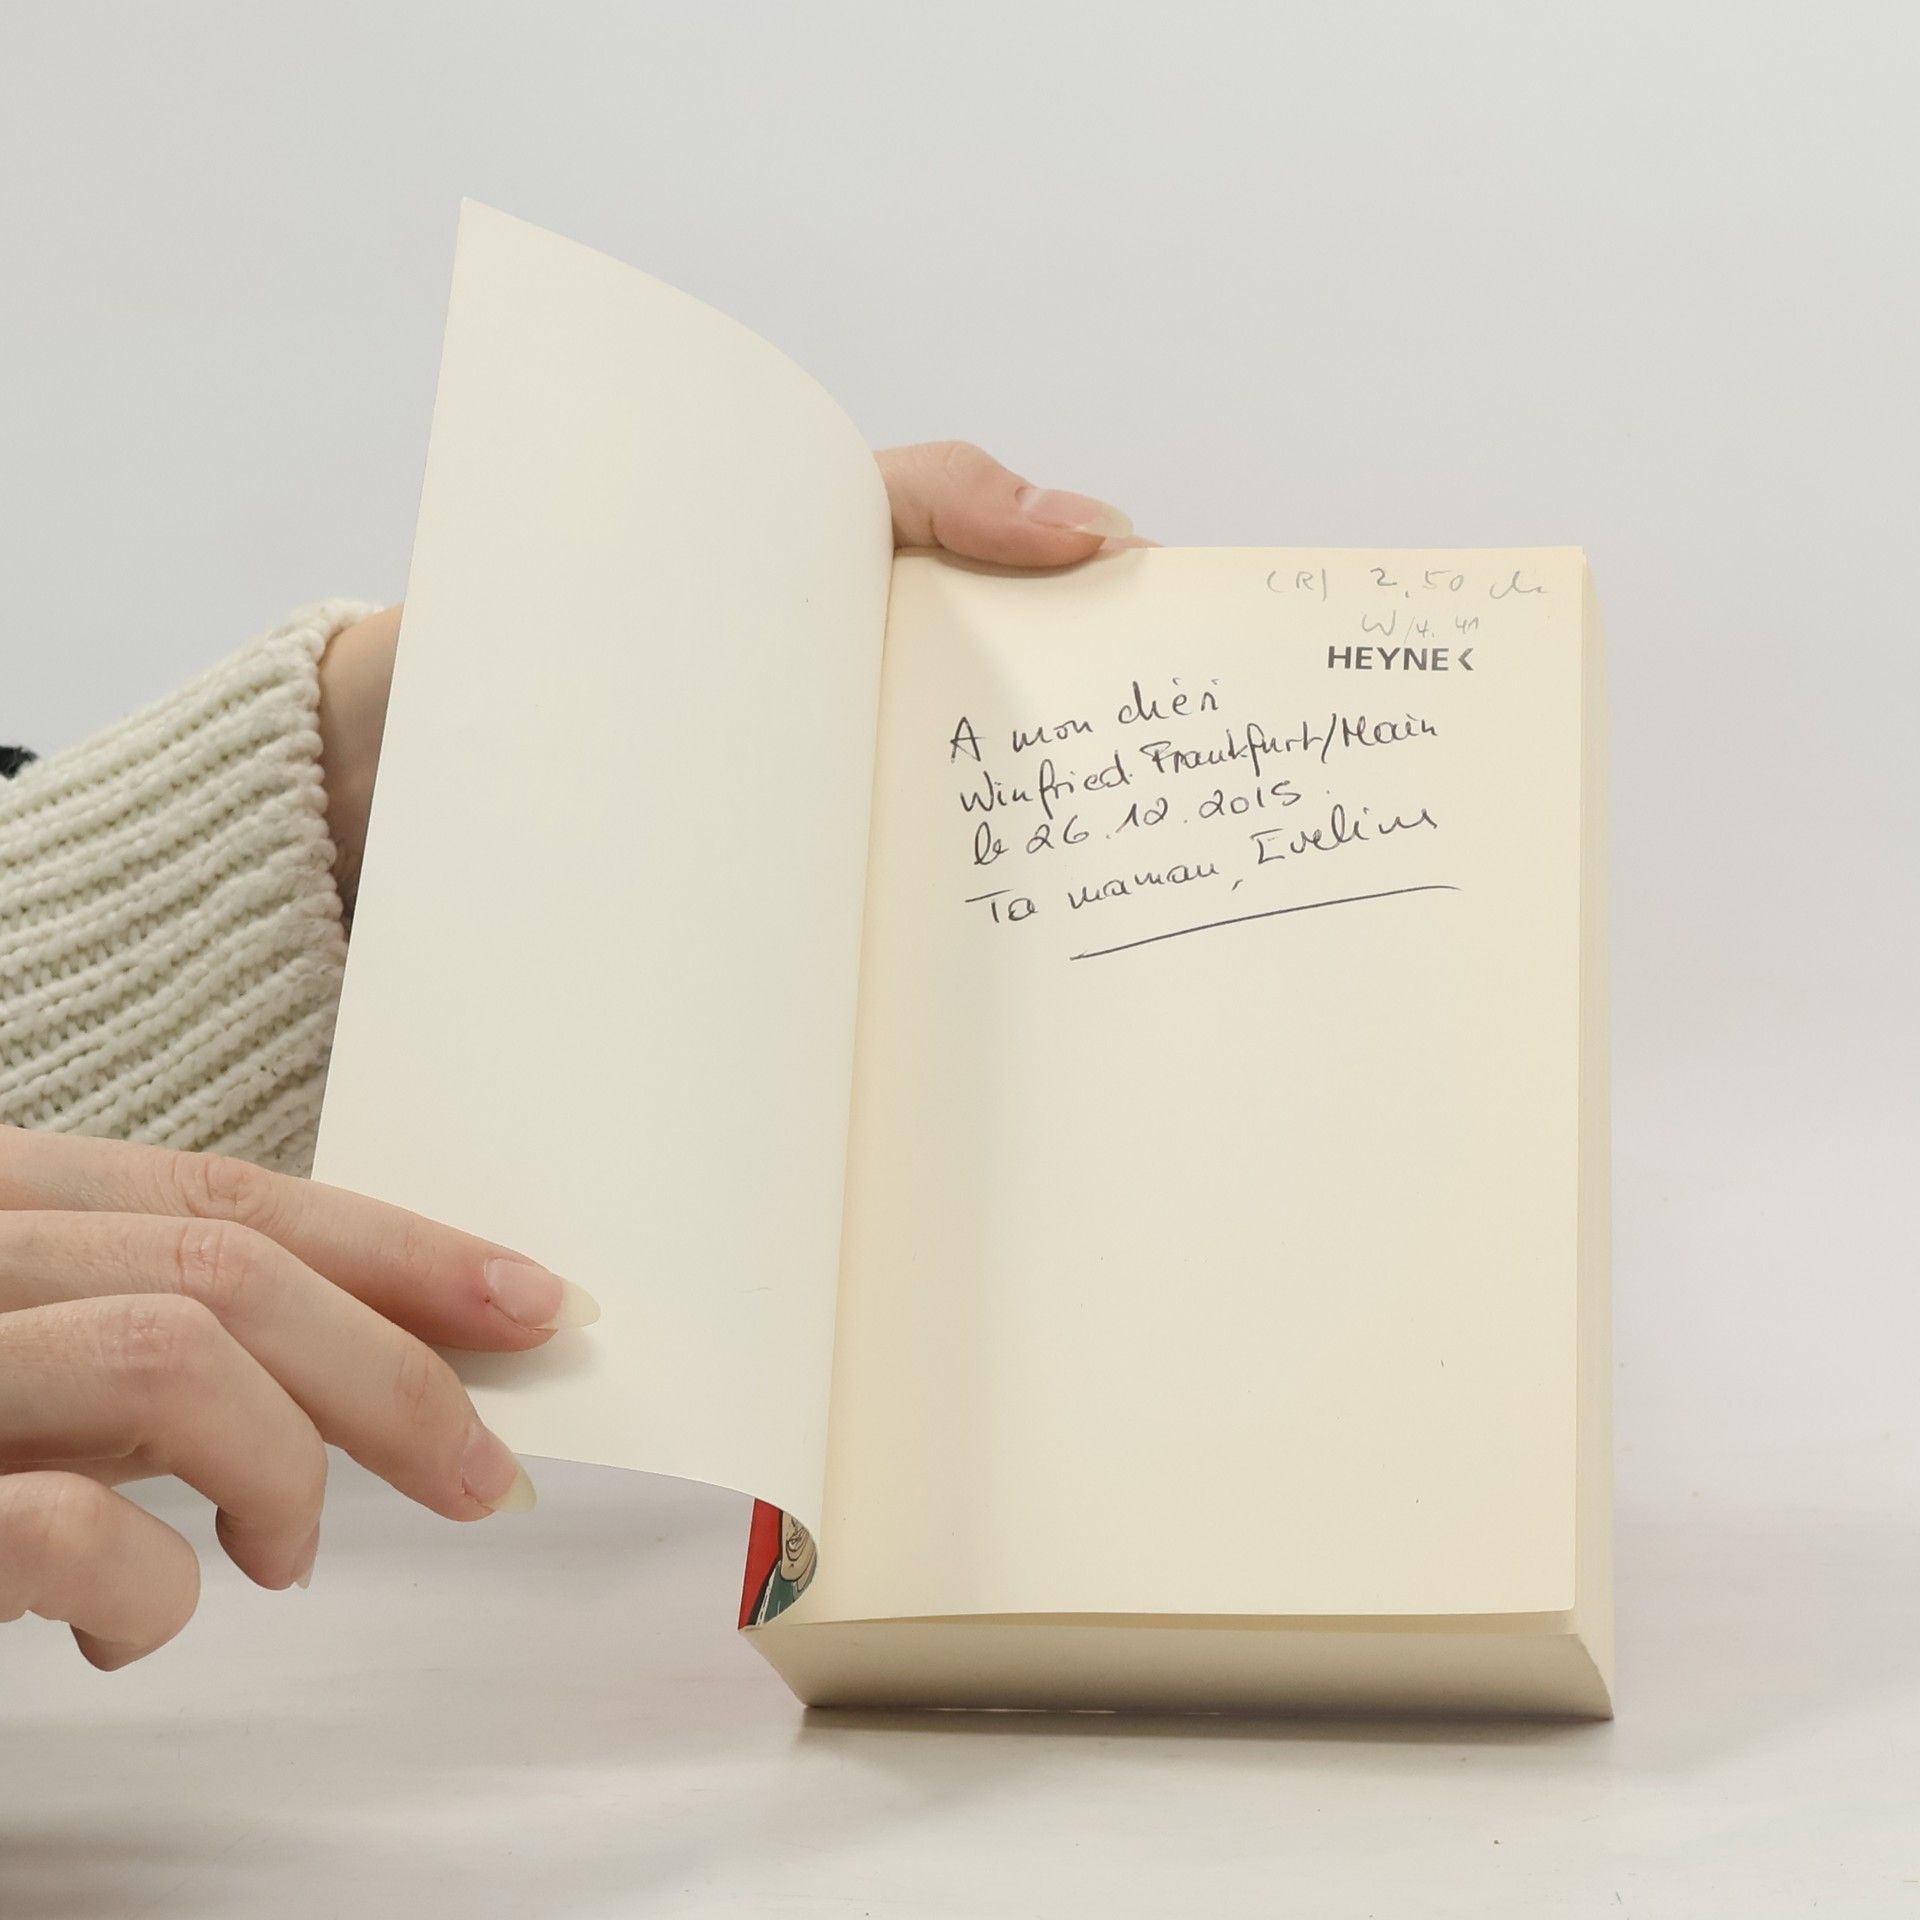 (R) 2,50
W/4. 41
HEYNE<
A mon chèri
Winfried Frankfurt/Main
le 26.12.2015.
Ta maman, Eveline